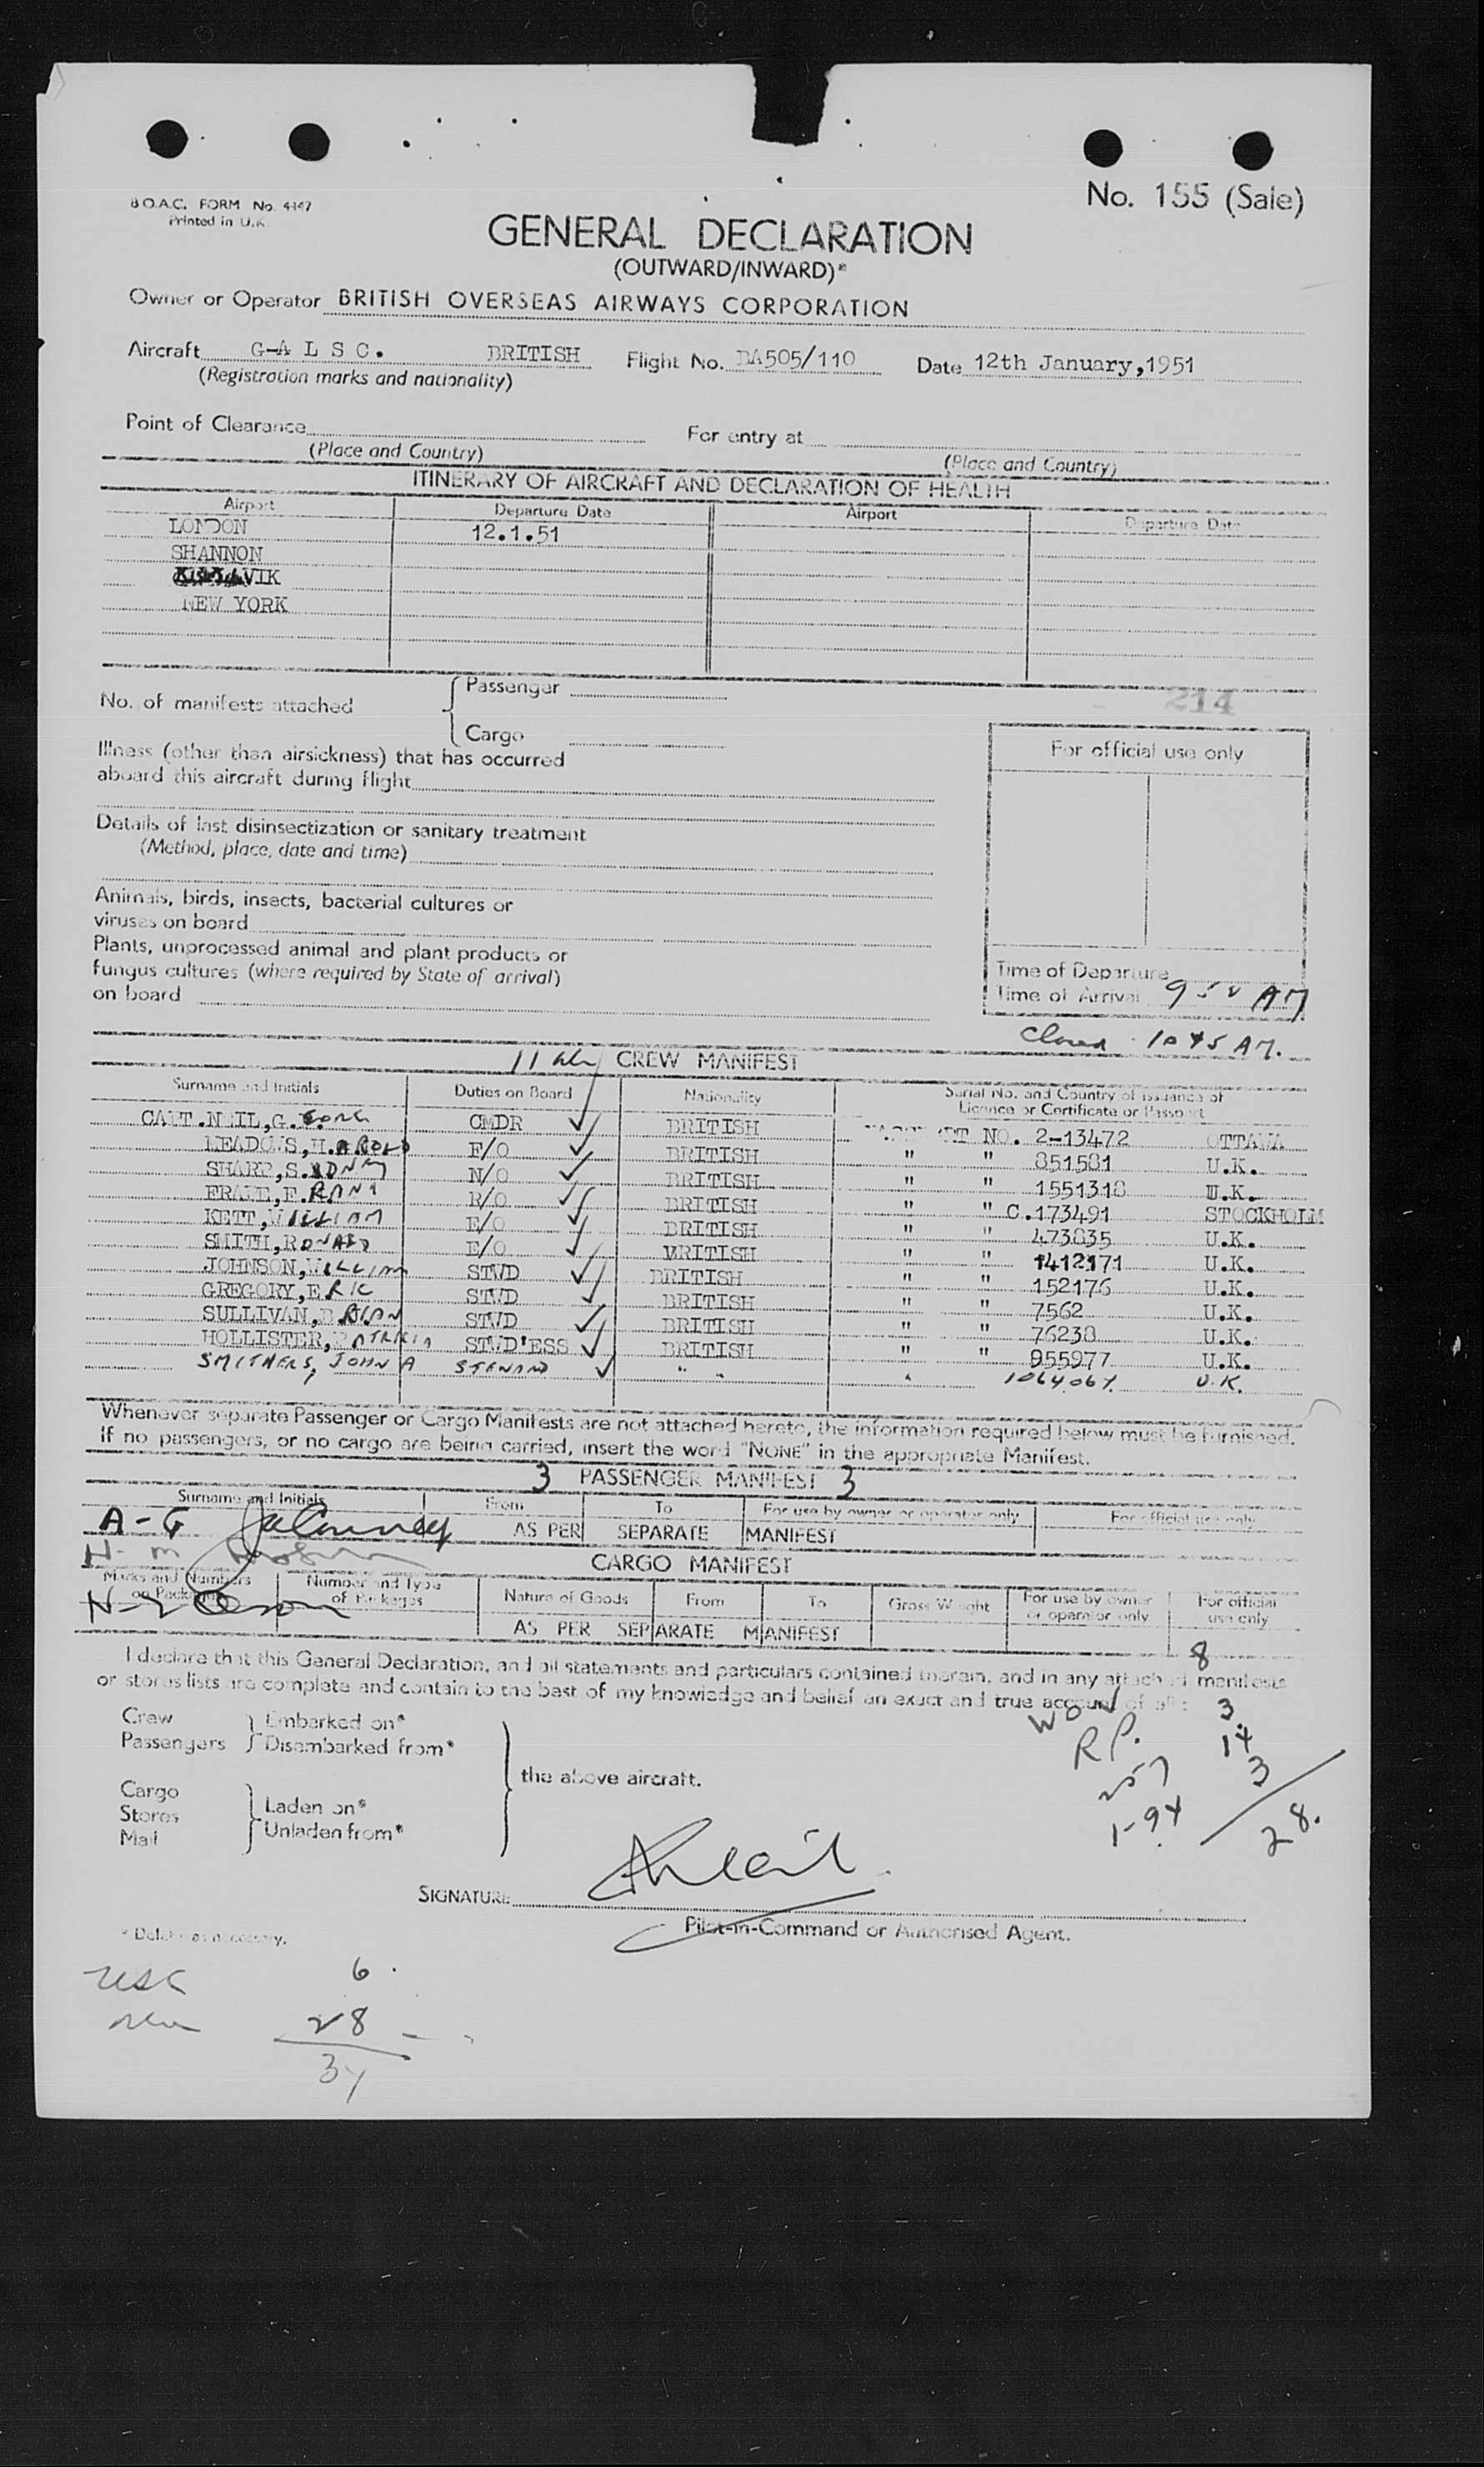 B.O.A.C. FORM No. 4147
Printed in U.K.
No. 155 (Sale)
GENERAL DECLARATION
(OUTWARD/INWARD)*
Owner or Operator BRITISH OVERSEAS AIRWAYS CORPORATION
Aircraft G-A L S C. BRITISH Flight No. BA505/110 Date 12th January,1951
(Registration marks and nationality)
Point of Clearance For entry at
(Place and Country) (Place and Country)
ITINERARY OF AIRCRAFT AND DECLARATION OF HEALTH
Airport Departure Date Airport Departure Date
LONDON 12.1.51
SHANNON
VIK
NEW YORK
No. of manifests attached { Passenger
Cargo
214
For official use only
Illness (other than airsickness) that has occurred
aboard this aircraft during flight
Details of last disinsectization or sanitary treatment
(Method, place, date and time)
Animals, birds, insects, bacterial cultures or
viruses on board
Plants, unprocessed animal and plant products or
fungus cultures (where required by State of arrival)
on board
Time of Departure
Time of Arrival AM
Closed 1045 AM.
11 CREW MANIFEST
Surname and Initials Duties on Board Nationality Serial No. and Country of Issuance of
Licence or Certificate or Passport
CAPT.NEIL,G. CMDR BRITISH PASSPORT NO. 2-13472 OTTAWA
MEADOWS,HAROLD F/O BRITISH " " 851581 U.K.
SHARP,SYDNEY N/O BRITISH " " 1551318 U.K.
R/O BRITISH " " C.173491 STOCKHOLM
KETT,WILLIAM E/O BRITISH " " 473835 U.K.
SMITH,RONALD E/O BRITISH " " 1412171 U.K.
JOHNSON,WILLIAM STWD BRITISH " " 152176 U.K.
GREGORY,ERIC STWD BRITISH " " 7562 U.K.
SULLIVAN,BRIAN STWD BRITISH " " 76238 U.K.
HOLLISTER,PATRICIA STWD'ESS BRITISH " " 955977 U.K.
SMITHERS, JOHN A STEWARD " " " U.K.
Whenever separate Passenger or Cargo Manifests are not attached hereto, the information required below must be furnished.
If no passengers, or no cargo are being carried, insert the word "NONE" in the appropriate Manifest.
3 PASSENGER MANIFEST 3
Surname and Initials From To For use by owner or operator only For official use only
A-G
AS PER SEPARATE MANIFEST
CARGO MANIFEST
Marks and Numbers on Packages Number and Type of Packages Nature of Goods From To Gross Weight For use by owner or operator only For official use only
AS PER SEPARATE MANIFEST
8
I declare that this General Declaration, and all statements and particulars contained therein, and in any attached manifests
or stores lists are complete and contain to the best of my knowledge and belief an exact and true account of all:
Crew } Embarked on*
Passengers } Disembarked from*
the above aircraft.
Cargo
Stores } Laden on*
Mail } Unladen from*
3
R P. 14
3
1-94
28.
SIGNATURE
Pilot-in-Command or Authorised Agent.
* Delete as necessary.
USC 6
28
34